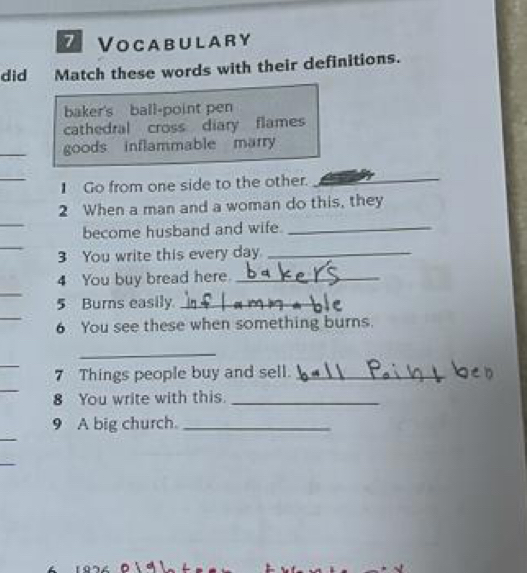 7 VOCABULARY
did
Match these words with their definitions.
baker's ball-point pen
cathedral cross diary flames
goods inflammable marry
1 Go from one side to the other.
2 When a man and a woman do this, they
become husband and wife.
3 You write this every day.
4 You buy bread here. baker's
5 Burns easily. inflammable
6 You see these when something burns.
7 Things people buy and sell. ball Point ben
8 You write with this.
9 A big church.
6 1826 eighteen twenty six